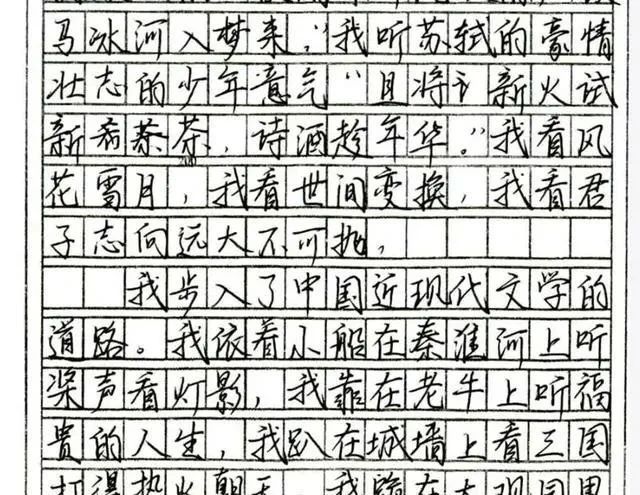 马冰河入梦来,"我听苏轼的豪情
壮志的少年意气"且将新火试
新茶,诗酒趁年华。"我看风
花雪月,我看世间变换,我看君
子志向远大不可抛,
我步入了中国近现代文学的
道路。我依着小船在秦淮河上听
桨声看灯影,我靠在老牛上听福
贵的人生,我趴在城墙上看三国
打得热火朝天,我